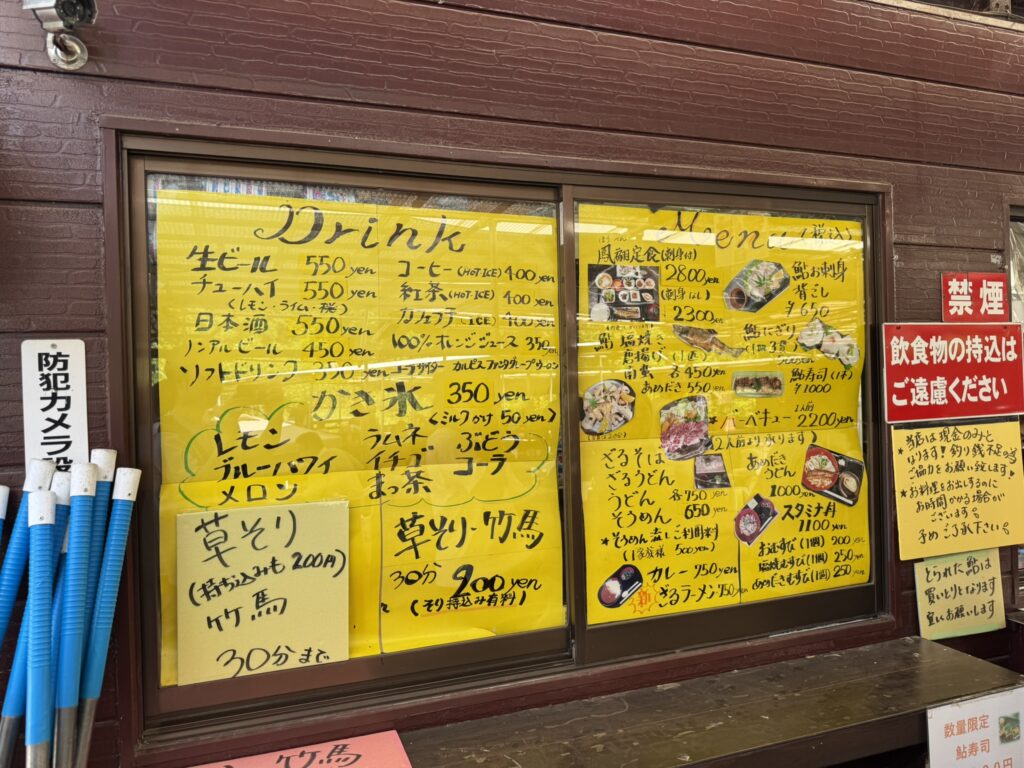 Drink
生ビール 550yen
チューハイ 550yen
(レモン・ライム・桜)
日本酒 550yen
ノンアルビール 450yen
ソフトドリンク 350yen
コーヒー(HOT・ICE) 400yen
紅茶(HOT・ICE) 400yen
(ICE) 400yen
100%オレンジジュース 350yen
かき氷 350yen
(ミルクかけ 50yen)
レモン ラムネ ぶどう
ブルーハワイ イチゴ コーラ
メロン まっ茶
草そり
(持ち込みも200円)
竹馬
30分まで
草そり・竹馬
30分 200yen
(そり持込み有料)
Menu(税込)
定食(刺身付)
2800yen
(刺身なし)
2300yen
鮎 塩焼き
唐揚げ
各450yen
あめだき550yen
鮎お刺身
背ごし
¥650
鮎にぎり
鮎寿司(1本)
¥1000
バーベキュー 1人前
2200yen
(2人前より承ります)
ざるそば
ざるうどん
うどん 各750yen
そうめん 650yen
★そうめん流しご利用料
(1家族様 500yen)
カレー 750yen
新 ざるラーメン 750yen
あめだき
うどん
1000yen
スタミナ丼
1100yen
おむすび(1個) 200yen
塩焼むすび(1個) 250yen
あめだきむすび(1個) 250
禁煙
飲食物の持込は
ご遠慮ください
当店は現金のみと
なります!釣り銭不足の為
ご協力をお願い致します!
★お料理をお出しするのに
お時間かかる場合が
ございます。
予めご了承下さい。
とられた鮎は
買いとりとなります
宜しくお願いします
防犯カメラ設
竹馬
数量限定
鮎寿司